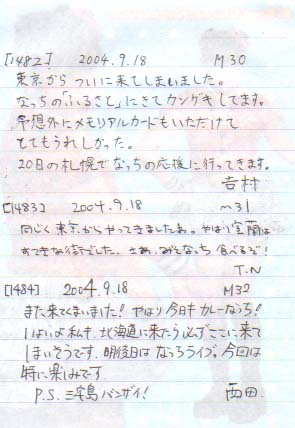 [1482] 2004.9.18 M30
東京から ついに来てしまいました。
なっちの「ふるさと」にきてカンゲキしてます。
予想外にメモリアルカードもいただけて
とてもうれしかった。
20日の札幌でなっちの応援に行ってきます。
吉村
[1483] 2004.9.18 m31
同じく東京からやってきましたあ。やはり室蘭は
すてきな街でした。さあ、みそなっち食べるぞ!
T.N
[1484] 2004.9.18 M32
また来てしまいました! やはり今日もカレーなっち!
いよいよ私も、北海道に来たら必ずここに来て
しまいそうです。明後日はなっちライブ。今回は
特に楽しみです。
P.S. 三宅島バンザイ! 西田.